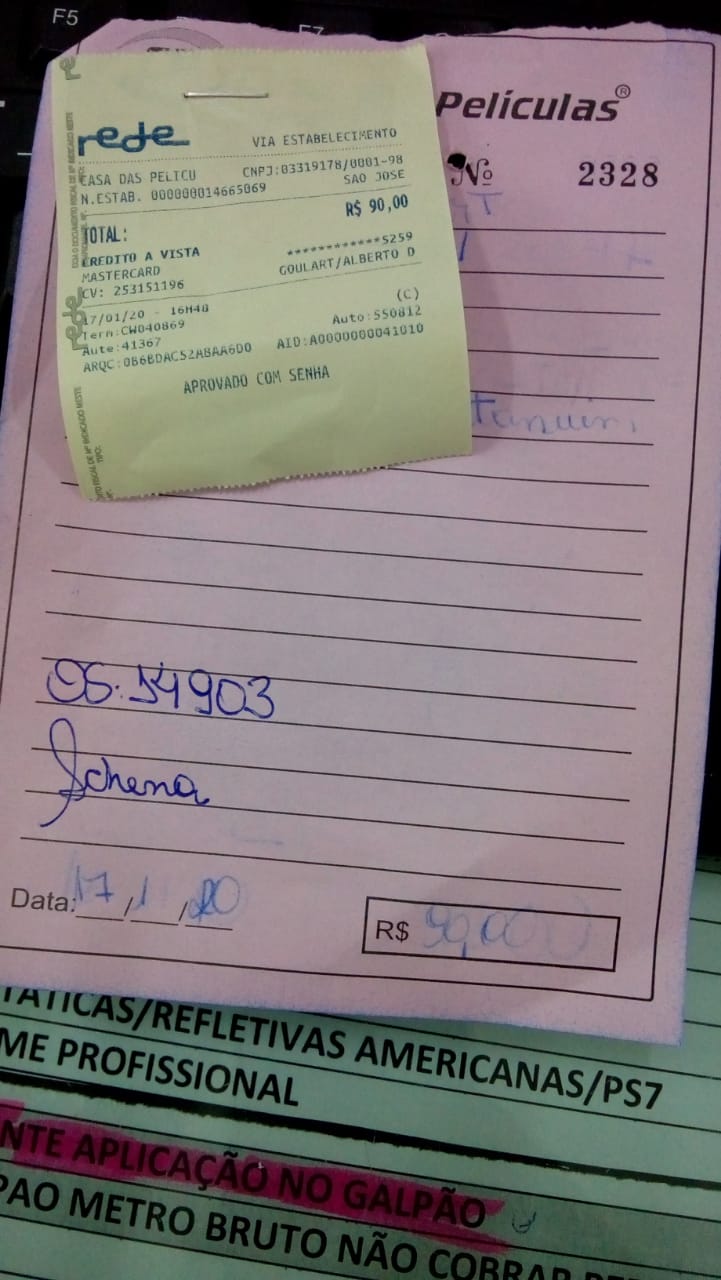 F5
Películas®
rede
VIA ESTABELECIMENTO
CASA DAS PELICU CNPJ:03319178/0001-98
N.ESTAB. 000000014665069 SAO JOSE
R$ 90,00
TOTAL:
CREDITO A VISTA ************5259
MASTERCARD GOULART/ALBERTO D
CV: 253151196
17/01/20 - 16H48 (C)
Term:CW040869 Auto:550812
Aute:41367 AID:A0000000041010
ARQC:0B6BDAC52ABAA6D0
APROVADO COM SENHA
Nº 2328
OS. 14903
Schena
Data: 17/1/20
R$ 90,00
TÁTICAS/REFLETIVAS AMERICANAS/PS7
ME PROFISSIONAL
NTE APLICAÇÃO NO GALPÃO
PAO METRO BRUTO NÃO COBRAR